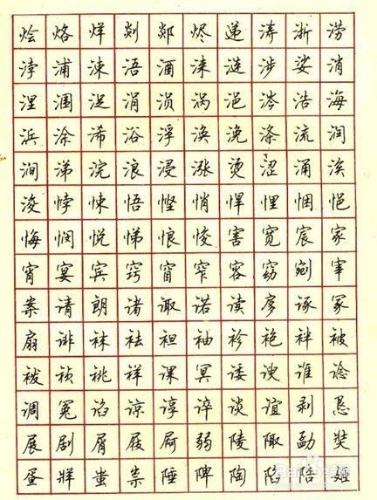 烩烙烊剡郯烬递涛浙涝
浡浦涑浯酒涞涟涉娑消
涅涠浞涓涢涡浥涔浩海
浜涂浠浴浮涣浼涤流润
涧涕浣浪浸涨烫涩涌涘
浚悖悚悟悭悄悍悝悃悒
悔悯悦悌悢悛害宽宸家
宵宴宾窍窅窄容窈剜宰
案请朗诸诹诺读扅诼冢
扇诽袜袪袒袖袗袍袢被
袯祯祧祥课冥诿谀谁谂
调冤谄谅谆谇谈谊剥恳
展剧屑屐屙弱陵陬勐奘
疍牂蚩祟陲陴陶陷陪姬